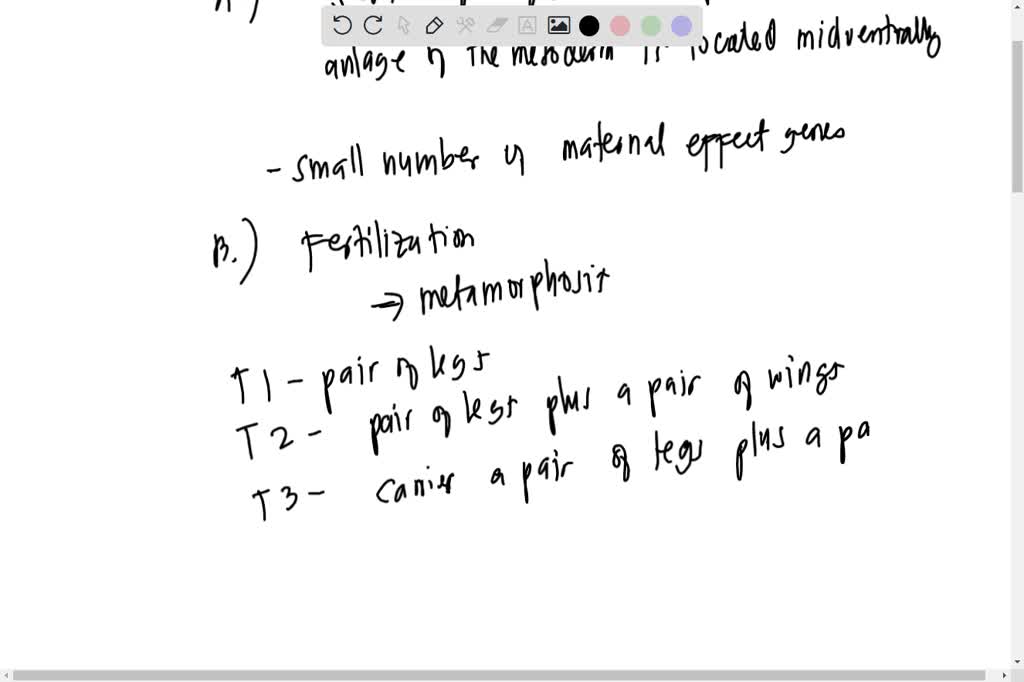 A)
anlage of the mesoderm is located midventrally
- small number of maternal effect genes
B.) Fertilization
→ metamorphosis
T1 - pair of legs
T2 - pair of legs plus a pair of wings
T3 - carries a pair of legs plus a pa